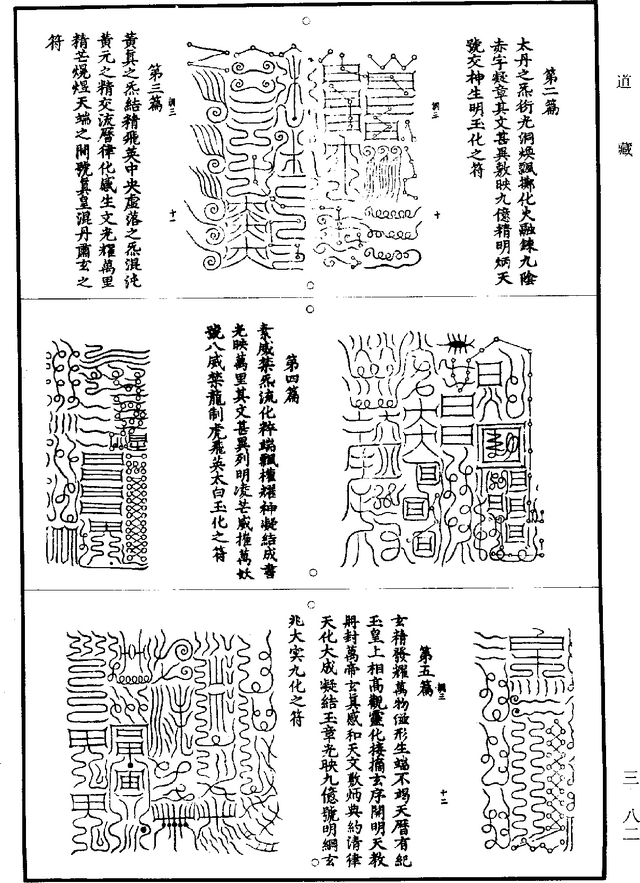 道藏
第二篇
太丹之炁衍光洞煥飄擲化火融鍊九陰
赤字凝章其文甚異敷映九億精明炳天
號交神生明玉化之符
洞三
十
洞三
十一
第三篇
黃真之炁結精飛英中央虛落之炁混沌
黃元之精交流曆律化感生文光耀萬里
精芒熀煜天端之開號真皇混丹書玄之
符
第四篇
素威禁炁流化粹端飄權耀神凝結成書
光映萬里其文甚異列明凌芒威摧萬妖
號八威禁龍制虎飛英太白玉化之符
洞三
十二
第五篇
玄精發耀萬物倣形生端不竭天曆有紀
玉皇上相高觀靈化接摘玄序開明天教
將封萬帝玄真感和天文敷炳典約清律
天化大成凝結玉章光映九億號明綱玄
兆大冥九化之符
三八二